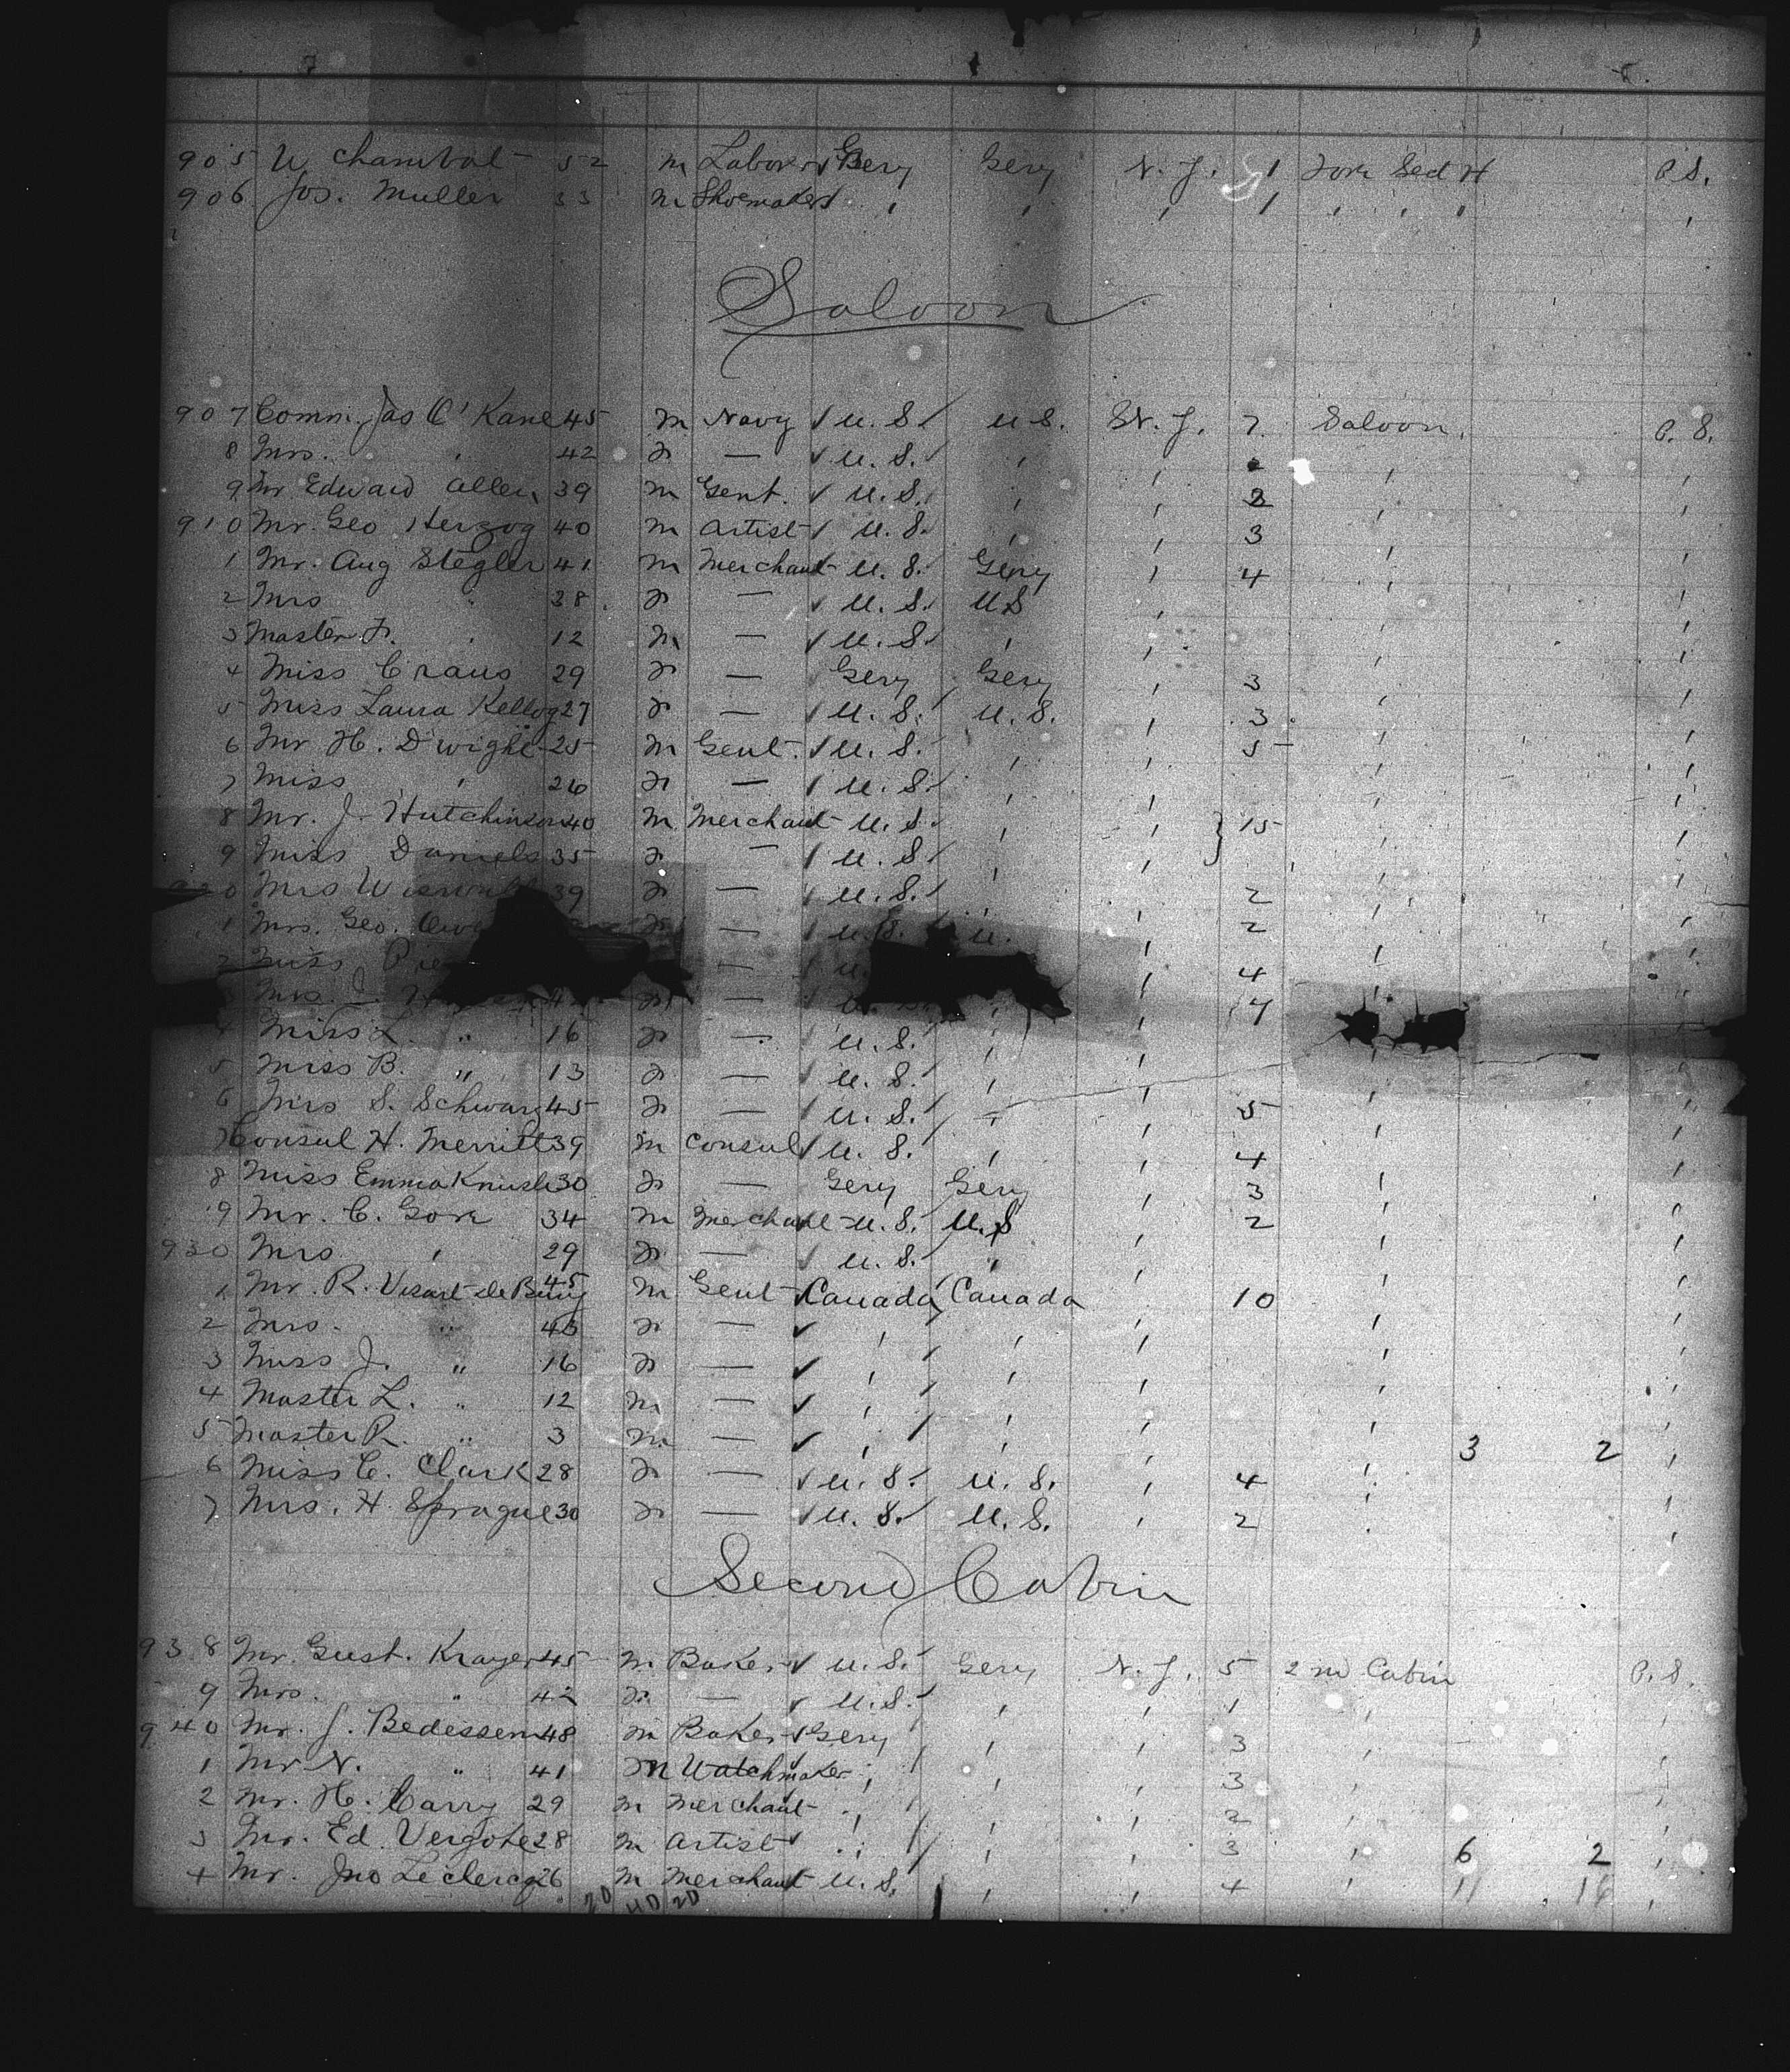 905 W Chambal 52 m Laborer Gery Gery N. Y. 1 Fore Sect H P. S.
906 Jos. Muller 33 m Shoemaker " " " 1 " " " "
Saloon
907 Comm. Jas O'Kane 45 m Navy U. S. U. S. N. Y. 7 Saloon P. S.
8 Mrs. " 42 f — U. S. " " 2 " "
9 Mr Edward Allen 39 m Gent. U. S. " " 2 " "
910 Mr. Geo Herzog 40 m Artist U. S. " " 3 " "
1 Mr. Aug Stegler 41 m Merchant U. S. Gery " 4 " "
2 Mrs " 38 f — U. S. U S " " "
3 Master F. " 12 m — U. S. " " " "
4 Miss Craus 29 f — Gery Gery " 3 " "
5 Miss Laura Kellog 27 f — U. S. U. S. " 3 " "
6 Mr H. Dwight 25 m Gent. U. S. " " 5 " "
7 Miss " 26 f — U. S. " " " "
8 Mr. J. Hutchinson 40 m Merchant U. S. " " } 15 " "
9 Miss Daniels 35 f — U. S. " " " "
920 Mrs 39 f — U. S. " " 2 " "
1 Mrs. Geo. f — U. S. U. " 2 " "
2 Miss — U. " 4 " "
3 Mrs. J. f — U. S. " " 4 " "
4 Miss L. " 16 f — U. S. " " " "
5 Miss B. " 13 f — U. S. " " " "
6 Mrs S. Schwarz 45 f — U. S. " " 5 " "
7 Consul H. Merritt 39 m Consul U. S. " " 4 " "
8 Miss Emma 30 f — Gery Gery " 3 " "
9 Mr. C. Gore 34 m Merchant U. S. U. S " 2 " "
930 Mrs " 29 f — U. S. " " " "
1 Mr. R. Visart de Bury 45 m Gent Canada Canada " 10 " "
2 Mrs. " 43 f — " " " " "
3 Miss J. " 16 f — " " " " "
4 Master L. " 12 m — " " " " "
5 Master R. " 3 m — " " " " 3 2 "
6 Miss C. Clark 28 f — U. S. U. S. " 4 " "
7 Mrs. H. Sprague 30 f — U. S. U. S. " 2 " "
Second Cabin
938 Mr. Gust. Krayer 45 m Baker U. S. Gery N. Y. 5 2nd Cabin P. S.
9 Mrs. " 42 f — U. S. " " 1 " "
940 Mr. J. Bedessem 48 m Baker Gery " " 3 " "
1 Mr N. " 41 m Watchmaker " " " 3 " "
2 Mr. H. Carry 29 m Merchant " " " 2 " "
3 Mr. Ed. Vergote 28 m Artist " " " 3 " 6 2 "
4 Mr. Jno Leclercq 26 m Merchant U. S. " " 4 " 11 16 "
20 40 20